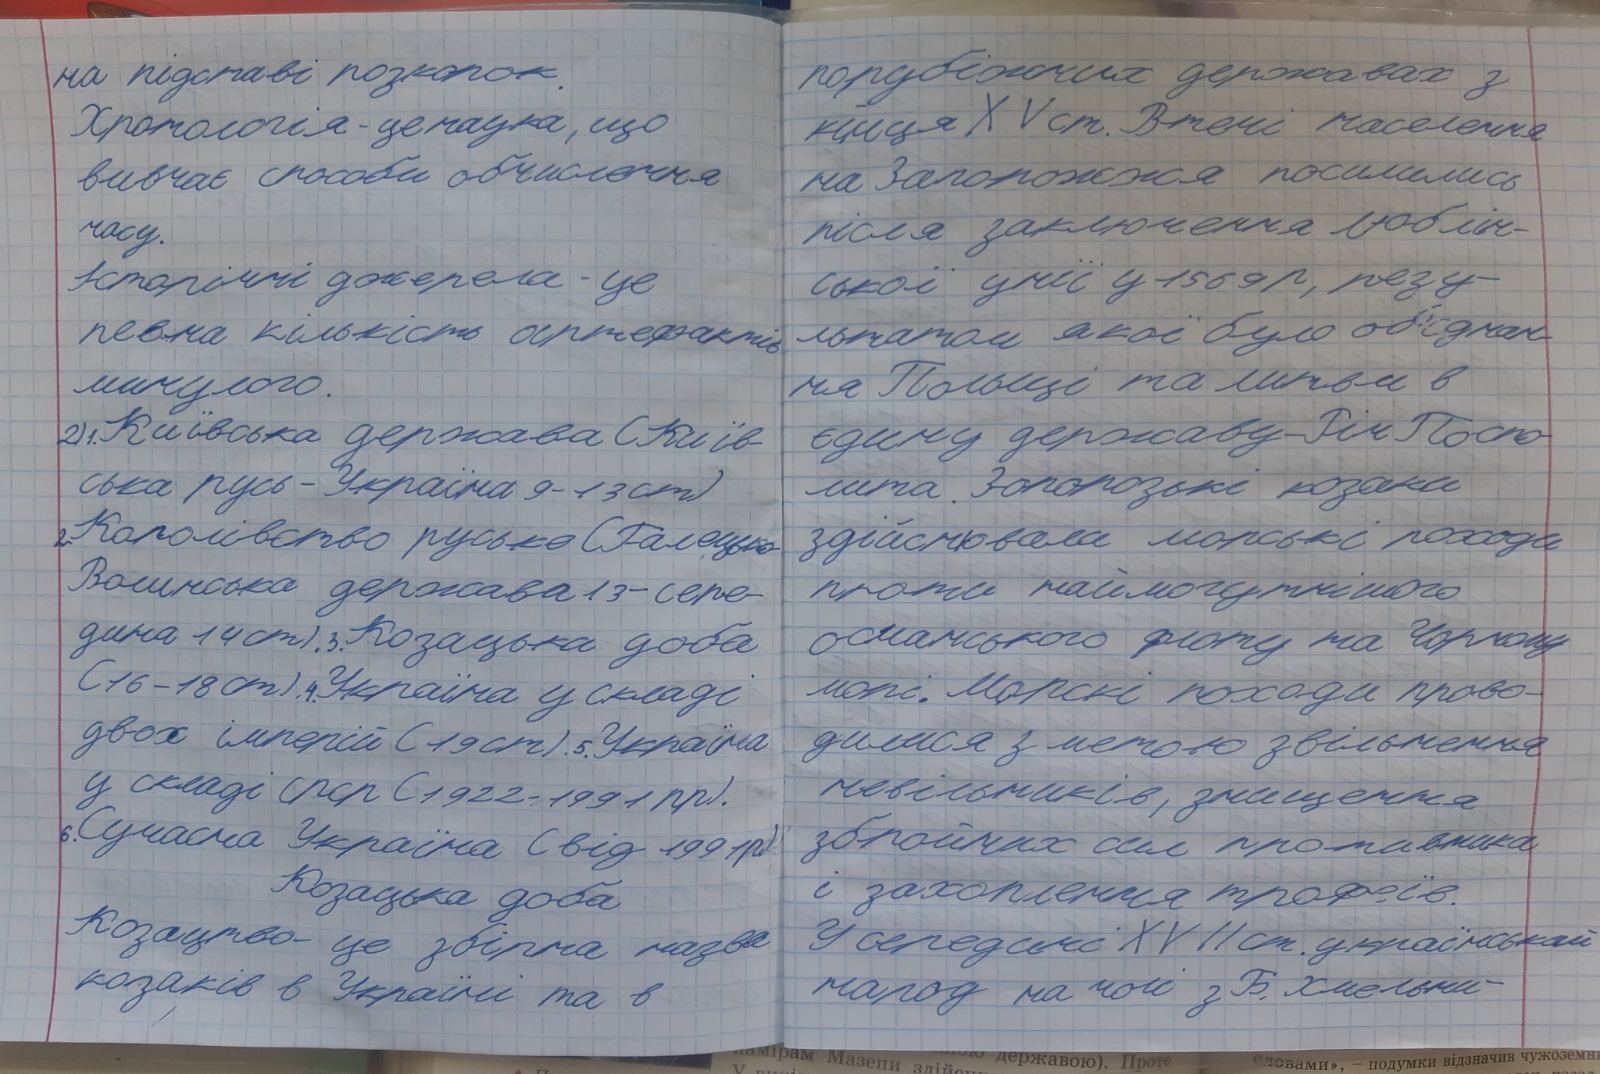 на підставі розкопок.
Хронологія - це наука, що
вивчає способи обчислення
часу.
Історичні джерела - це
певна кількість артефактів
минулого.
2) 1. Київська держава (Київ
ська русь - Україна 9-13 ст)
2. Королівство руське (Галецько
Волинська держава 13 - сере-
дина 14 ст). 3. Козацька доба
(16-18 ст). 4. Україна у складі
двох імперій (19 ст). 5. Україна
у складі срср (1922-1991 рр).
6. Сучасна Україна (від 1991р)
Козацька доба
Козацтво - це збірна назва
козаків в Україні та в
порубіжних державах з
кінця XV ст. Втечі населення
на Запоріжжя посилились
після заключення Люблін-
ської унії у 1569р, резу-
льтатом якої було об'єднан-
ня Польщі та литви в
єдину державу - Річ Поспо-
лита. Запорозькі козаки
здійснювали морські походи
проти наймогутнішого
османського флоту на Чорному
морі. Морскі походи прово-
дилися з метою звільнення
невільників, знищення
збройних сил противника
і захоплення трофеїв.
У середині XVII ст. український
народ на чолі з Б. Хмельни-
намірам Мазепи здійсн
ною державою). Проте
словами», – подумки відзначив чужоземн